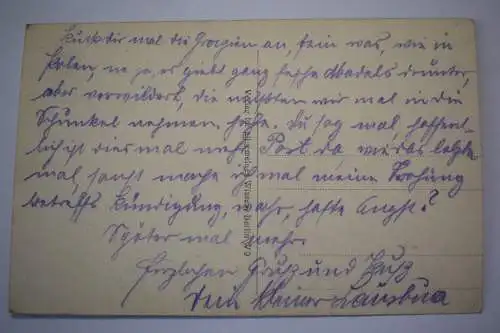 Kuck dir mal die Grazien an, fein was, wie in
Polen, na ja, es giebt ganz fesche Madels drunter,
aber verwildert, die müßten wir mal in die
Schunkel nehmen hehe. Du sag mal, hoffent-
lich ist diesmal mehr Post da wie das letzte
mal, sonst mache ich mal meine Drohung
betreffs Kündigung, wahr, haste Angst?
Später mal mehr.
Herzlichen Gruß und Kuß
Dein kleiner Lausbua